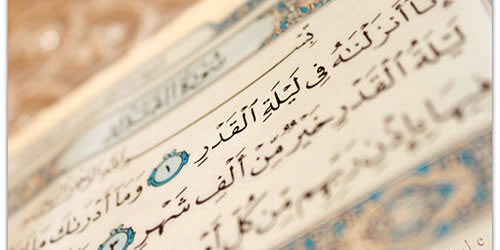 سُورَةُ
بِسْ
أَنزَلْنَٰهُ فِى لَيْلَةِ ٱلْقَدْرِ ١ وَمَآ أَدْرَىٰكَ مَا
لَيْلَةُ ٱلْقَدْرِ خَيْرٌ مِّنْ أَلْفِ شَهْرٍ ٣
فِيهَا بِإِذْنِ رَبِّهِم مِّن كُلِّ